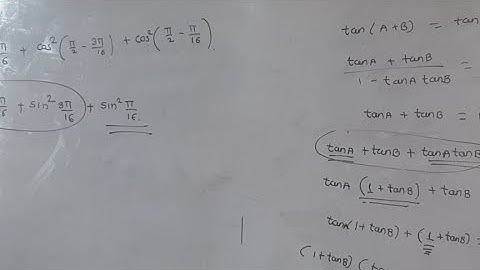 π/16 + cos²(π/2 - 3π/16) + cos²(π/2 - π/16)
π/16 + sin² 3π/16 + sin² π/16
tan(A+B) = tan
(tanA + tanB)/(1 - tanA tanB) =
tanA + tanB =
tanA + tanB + tanA tanB
tanA (1 + tanB) + tanB
tanA(1 + tanB) + (1 + tanB) =
(1 + tanB) (